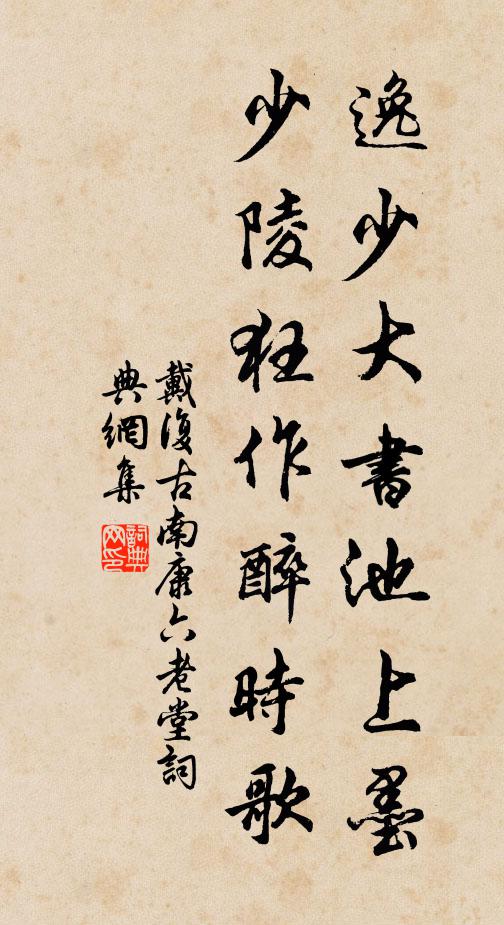 逸少大書池上墨
少陵狂作醉時歌
戴復古南康六老堂詞
典網集
詞典
网印